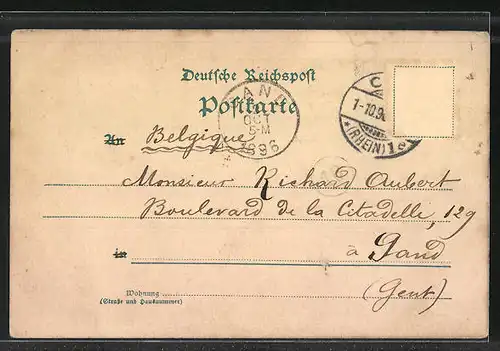 Deutsche Reichspost
Postkarte
GAND
OCT
5-M
1896
C
1-10.9
*(RHEIN)1
An Belgique
Monsieur Richard Aubert
Boulevard de la Citadelle, 129
in à Gand
(Gent)
Wohnung
(Straße und Hausnummer)